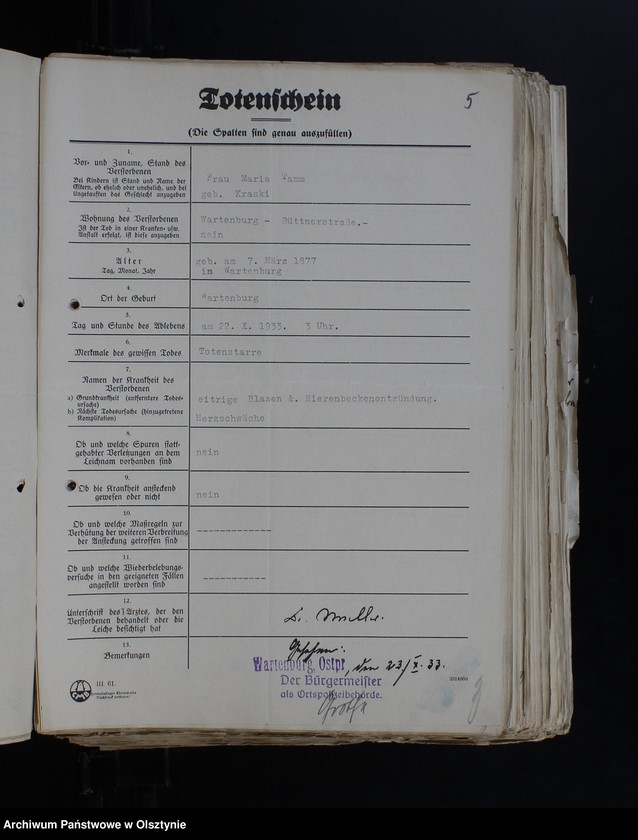 Totenschein
5
(Die Spalten sind genau auszufüllen)
1.
Vor- und Zuname, Stand des
Verstorbenen
Bei Kindern ist Stand und Name der
Eltern, ob ehelich oder unehelich, und bei
Ungetauften das Geschlecht anzugeben
Frau Maria Tamm
geb. Kraski
2.
Wohnung des Verstorbenen
Ist der Tod in einer Kranken- usw.
Anstalt erfolgt, ist diese anzugeben
Wartenburg - Büttnerstraße.-
nein
3.
Alter
Tag, Monat, Jahr
geb. am 7. März 1877
in Wartenburg
4.
Ort der Geburt
Wartenburg
5.
Tag und Stunde des Ablebens
am 22. X. 1933. 3 Uhr.
6.
Merkmale des gewissen Todes
Totenstarre
7.
Namen der Krankheit des
Verstorbenen
a) Grundkrankheit (entferntere Todes-
ursache)
b) Nächste Todesursache (hinzugetretene
Komplikation)
eitrige Blasen & Nierenbeckenentzündung.
Herzschwäche
8.
Ob und welche Spuren statt-
gehabter Verletzungen an dem
Leichnam vorhanden sind
nein
9.
Ob die Krankheit ansteckend
gewesen oder nicht
nein
10.
Ob und welche Maßregeln zur
Verhütung der weiteren Verbreitung
der Ansteckung getroffen sind
-------------
11.
Ob und welche Wiederbelebungs-
versuche in den geeigneten Fällen
angestellt worden sind
-----------
12.
Unterschrift des Arztes, der den
Verstorbenen behandelt oder die
Leiche besichtigt hat
13.
Bemerkungen
Gesehen:
Wartenburg, Ostpr, den 23/X. 33.
Der Bürgermeister
als Ortspolizeibehörde.
III 61.
Archiwum Państwowe w Olsztynie